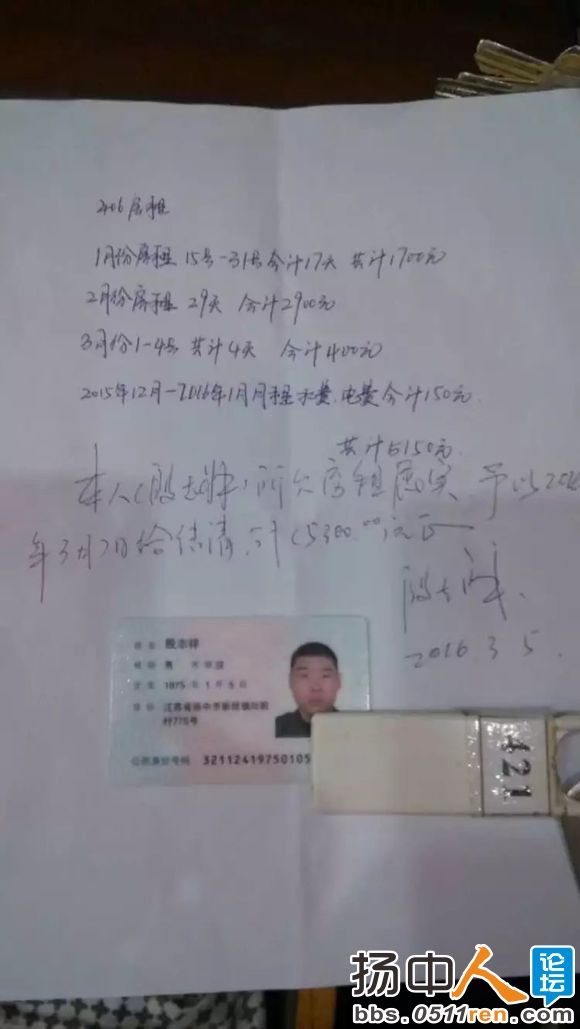 206房租
1月份房租 15号-31号合计17天 共计1700元
2月份房租 29天 合计2900元
3月份1-4号 共计4天 合计400元
2015年12月-2016年1月月租水费、电费合计150元.
共计5150元.
本人(殷志祥)所欠房租属实 予以2016
年3月7日给结清,计(5300.00元正
殷志祥.
2016.3.5.
姓名 殷志祥
性别 男 民族 汉
出生 1975 年 1 月 5 日
住址 江苏省扬中市新坝镇
村775号
公民身份号码 32112419750105
421
扬中人 论坛
bbs.0511ren.com